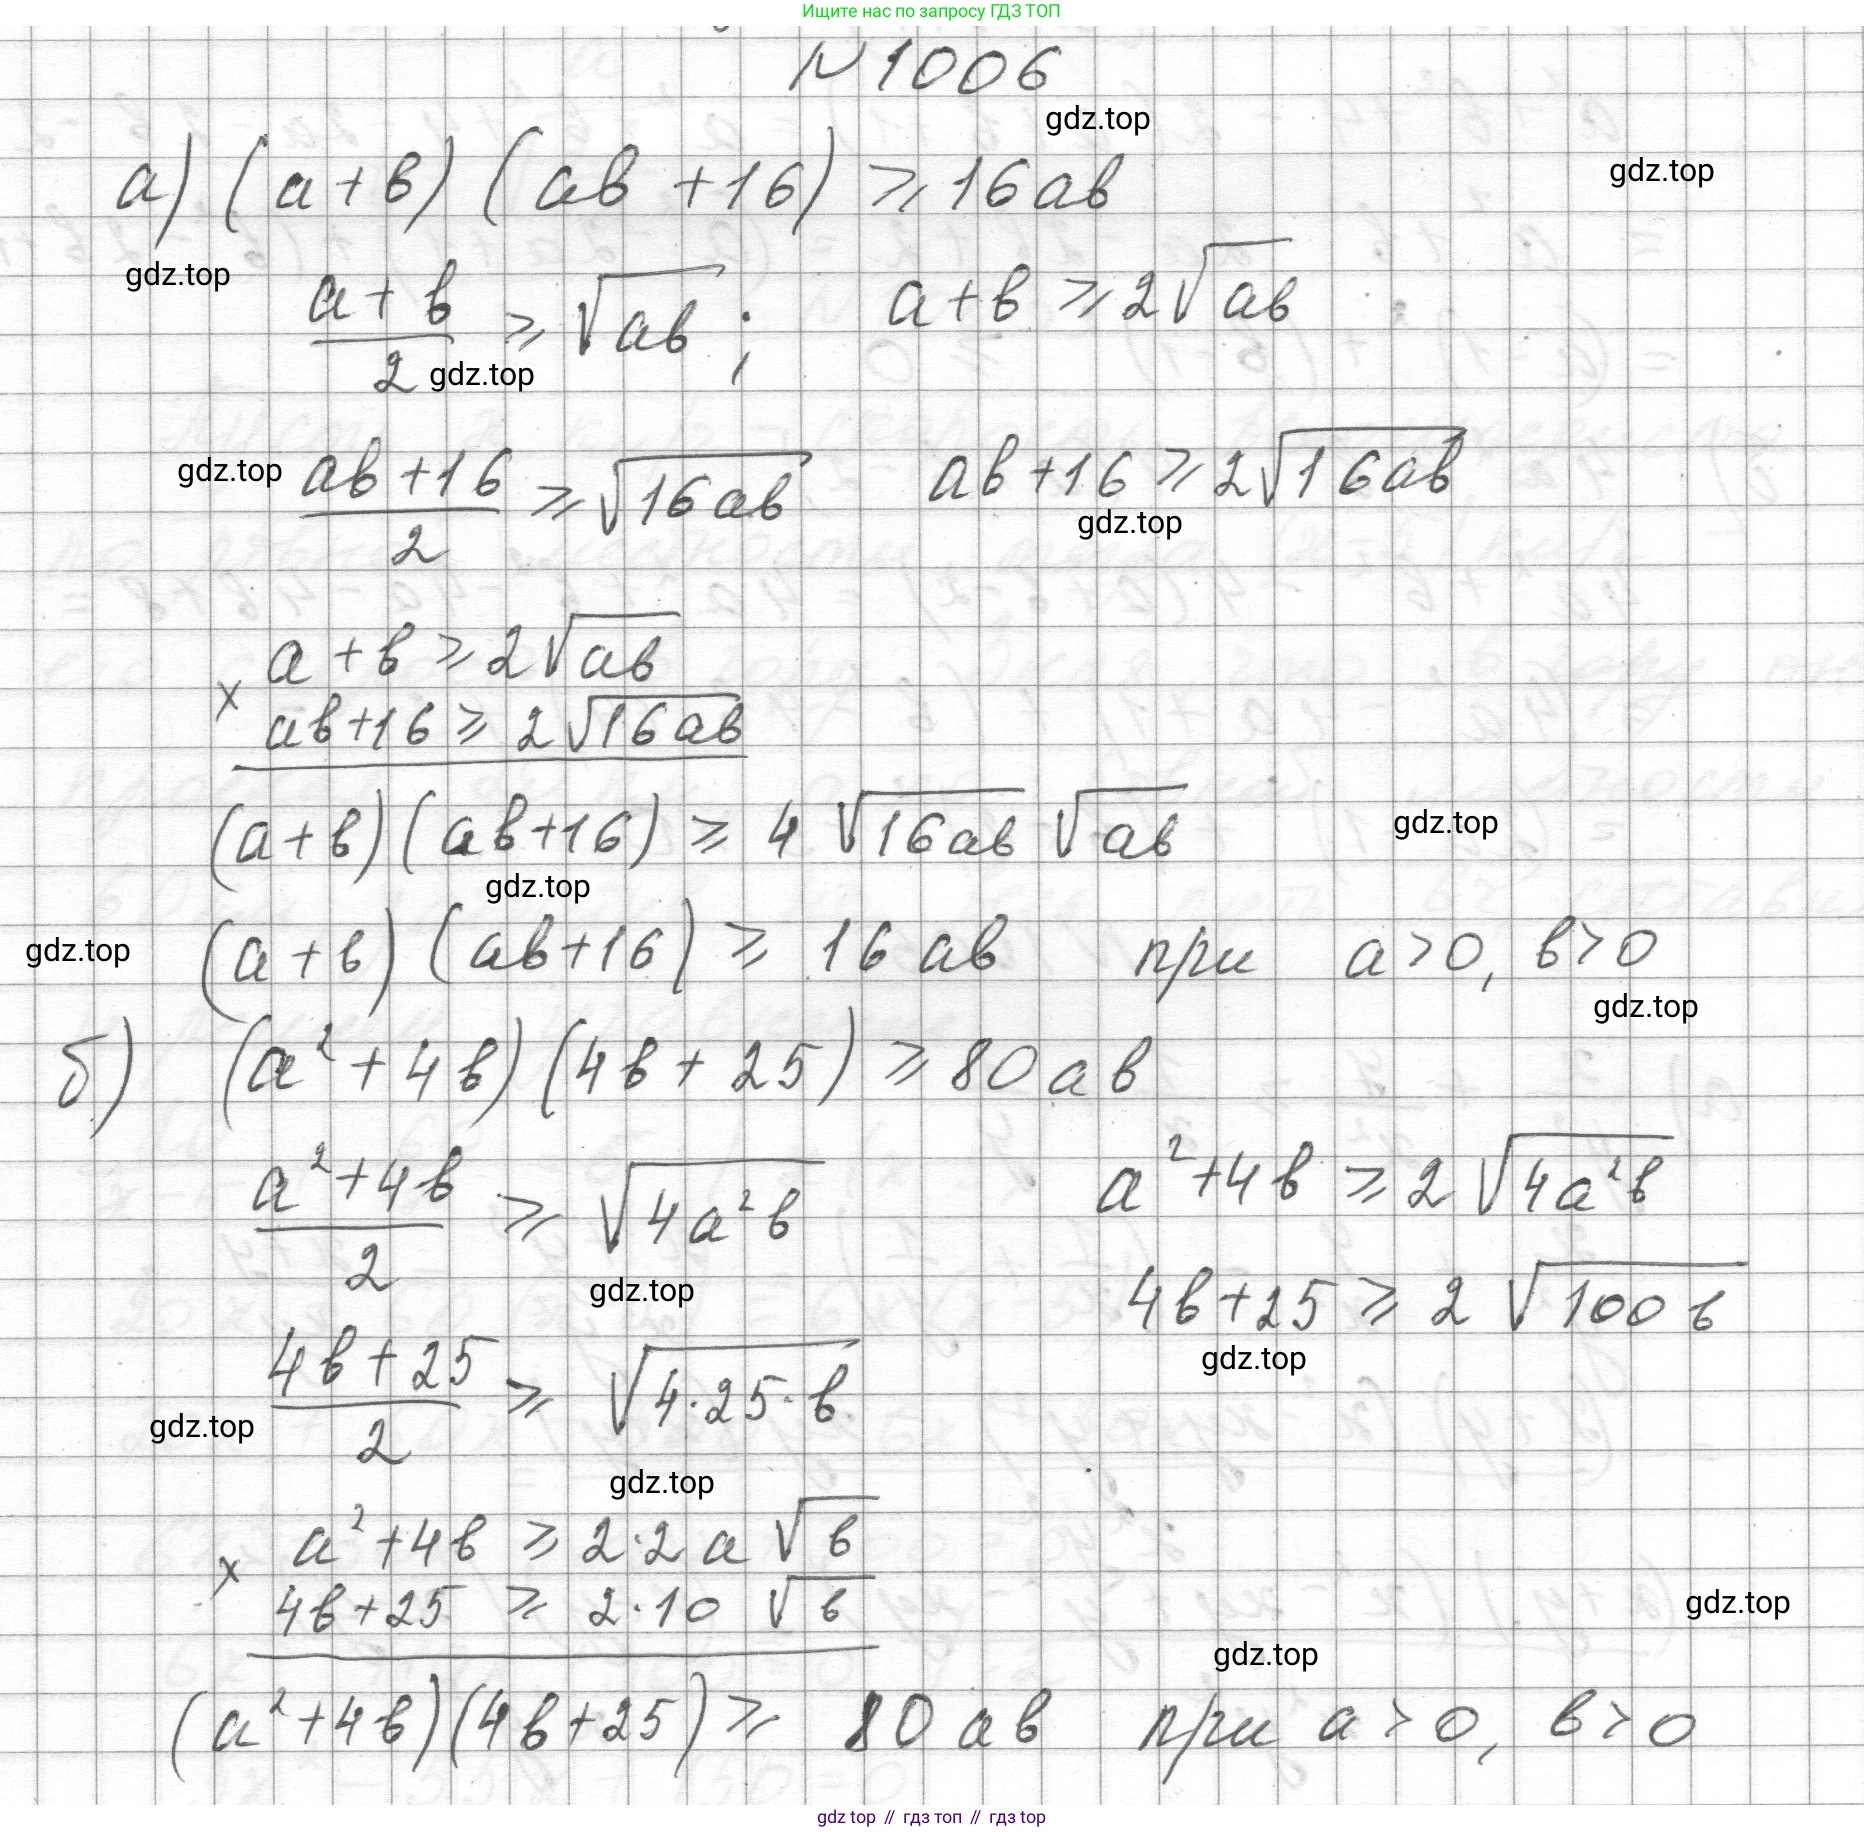 Ищите нас по запросу ГДЗ ТОП
N 1006
gdz.top
а) (a+в) (aв +16) ⩾ 16aв
gdz.top
gdz.top
(a+в)/2 ⩾ √(aв) ; a+в ⩾ 2√(aв)
gdz.top
gdz.top
(aв+16)/2 ⩾ √(16aв) aв+16 ⩾ 2√(16aв)
gdz.top
a+в ⩾ 2√(aв)
×
aв+16 ⩾ 2√(16aв)
(a+в)(aв+16) ⩾ 4 √(16aв) √(aв)
gdz.top
gdz.top
(a+в) (aв+16) ⩾ 16 aв при a>0, в>0
gdz.top
gdz.top
б) (a²+4в)(4в+25) ⩾ 80aв
(a²+4в)/2 ⩾ √(4a²в) a²+4в ⩾ 2√(4a²в)
gdz.top
4в+25 ⩾ 2√(100в)
gdz.top
(4в+25)/2 ⩾ √(4·25·в)
gdz.top
gdz.top
a²+4в ⩾ 2·2a√в
×
4в+25 ⩾ 2·10√в
gdz.top
gdz.top
(a²+4в)(4в+25) ⩾ 80aв при a>0, в>0
gdz top // гдз топ // гдз top